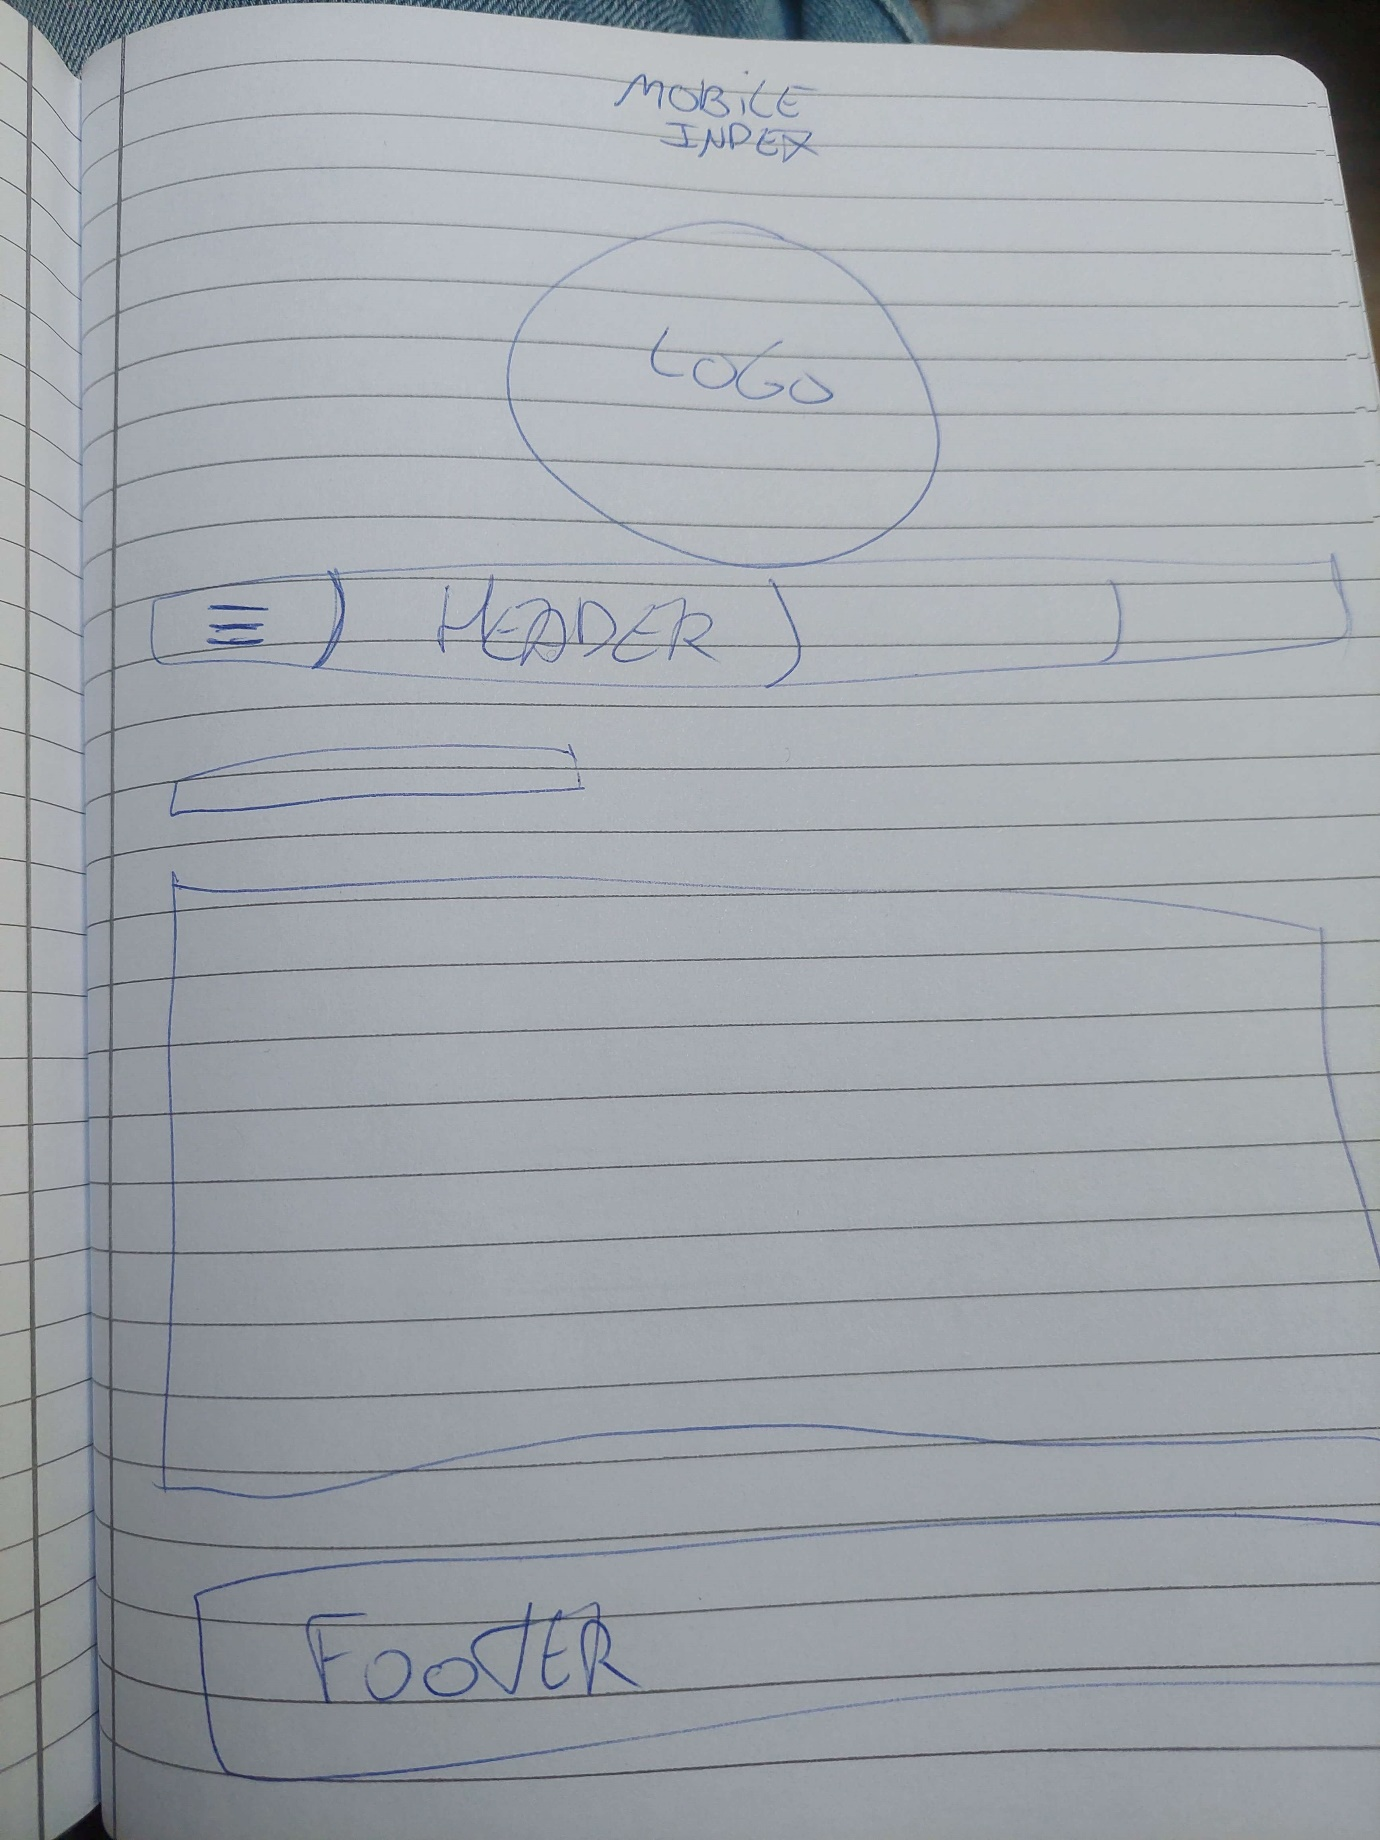 MOBiLE
INDEX
LOGO
HEADER
FOOTER